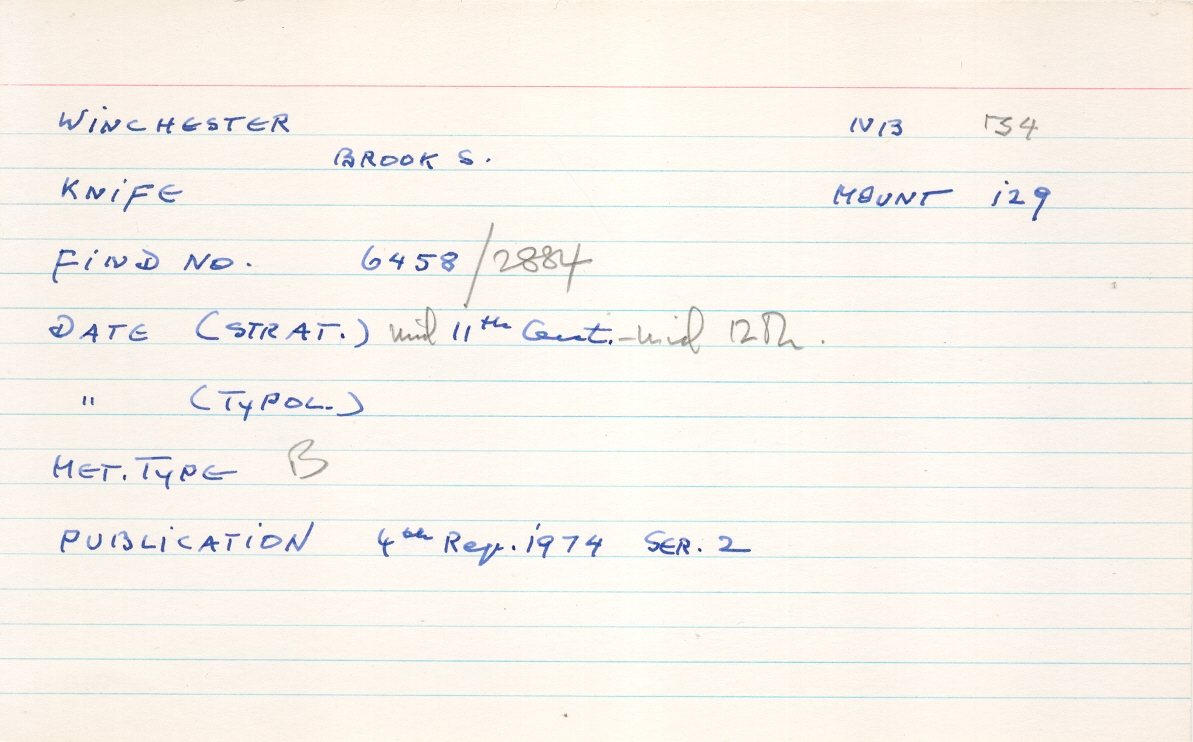 WINCHESTER IV13 754
BROOK S.
KNIFE MOUNT 129
FIND NO. 6458/2884
DATE (STRAT.) mid 11th Cent.-mid 12th.
" (TYPOL.)
MET. TYPE B
PUBLICATION 4th Rep. 1974 SER. 2